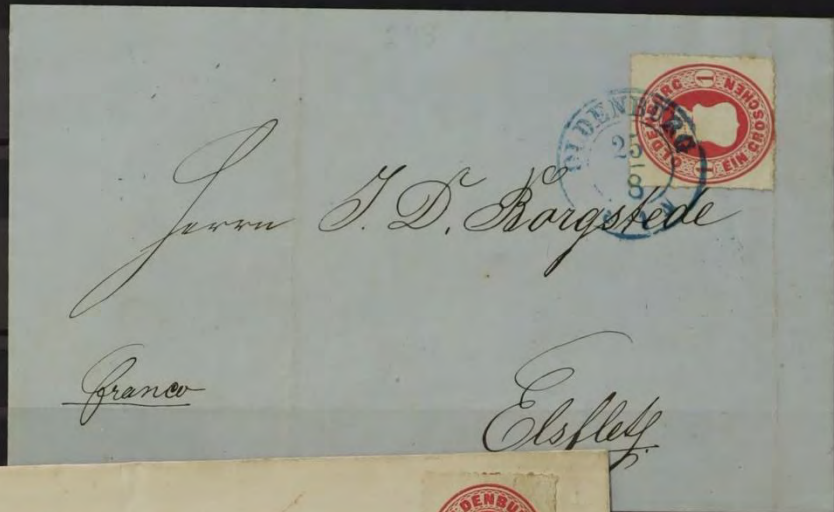 OLDENBURG
EIN GROSCHEN
1
OLDENBURG
25
8
Herrn J. D. Borgstede
franco
Elsfleth
DENBU